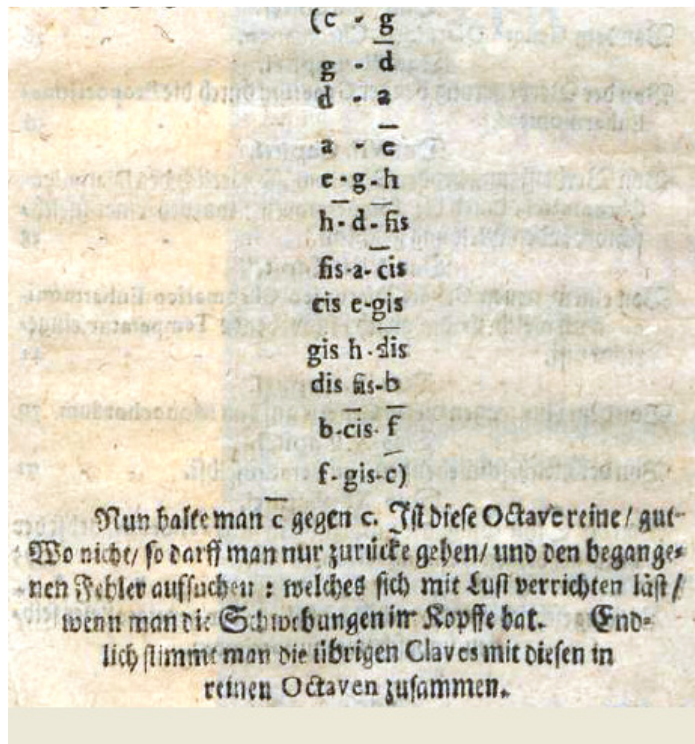 (c - g
g - d̅
d - a
a - e̅
e - g - h
h - d̅ - fi̅s
fis-a-ci̅s
cis e-gis
gis h - di̅s
dis fis-b
b-ci̅s- f̅
f-gis-c̅)
Nun halte man c̅ gegen c. Ist diese Octave reine/ gut-
Wo nicht/ so darff man nur zurücke gehen/ und den begange-
nen Fehler aufsuchen : welches sich mit Lust verrichten läst/
wenn man die Schwebungen im Kopffe hat. End-
lich stimmt man die übrigen Claves mit diesen in
reinen Octaven zusammen.